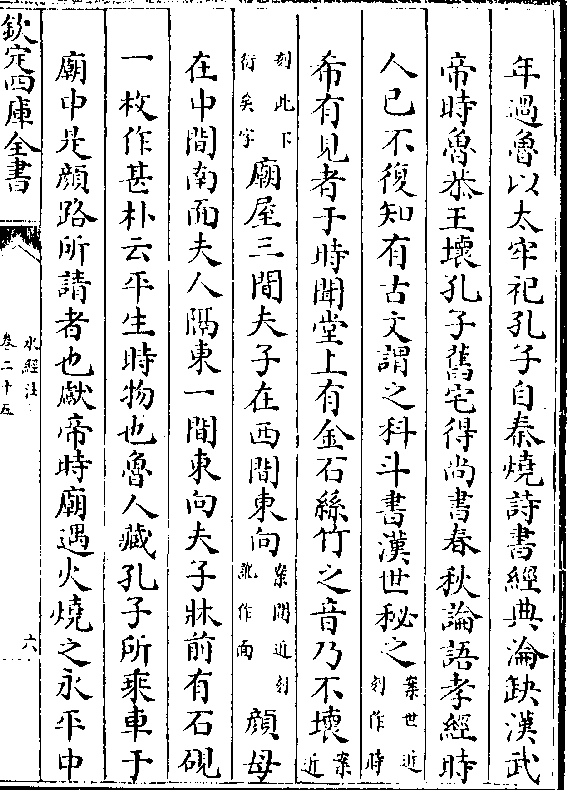 年過魯以太牢祀孔子自秦燒詩書經典淪缺漢武
帝時魯恭王壞孔子舊宅得尚書春秋論語孝經時
人已不復知有古文謂之科斗書漢世秘之案世近刻作時
希有見者于時聞堂上有金石絲竹之音乃不壞案近
刻此下衍矣字廟屋三間夫子在西間東向案間近刻訛作面顔母
在中間南面夫人隔東一間東向夫子牀前有石硯
一枚作甚朴云平生時物也魯人藏孔子所乘車于
廟中是顔路所請者也獻帝時廟遇火燒之永平中
欽定四庫全書
水經注
卷二十五
六